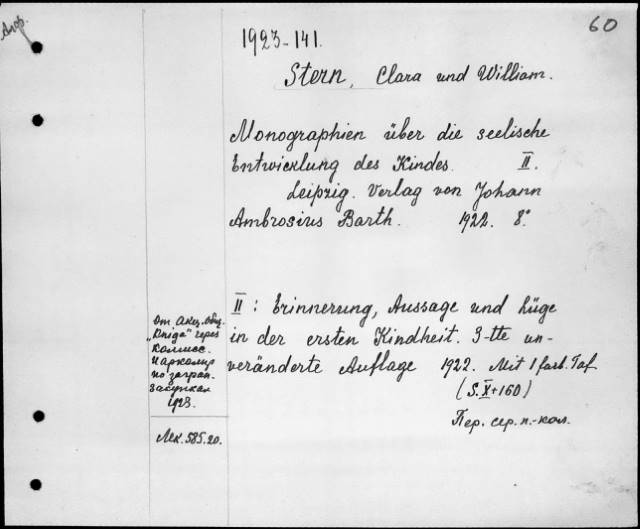 60
1923-141.
Stern, Clara und William.
Monographien über die seelische
Entwicklung des Kindes. II.
Leipzig. Verlag von Johann
Ambrosius Barth. 1922. 8°
II: Erinnerung, Aussage und Lüge
in der ersten Kindheit. 3-tte un-
veränderte Auflage 1922. Mit 1 farb. Taf
(S. X+160)
Пер. сер. п.-кол.
От Акц. Общ.
„Kniga" через
Комисс.
Наркомпр
по загран.
закупкам
1923.
Лек. 585.20.